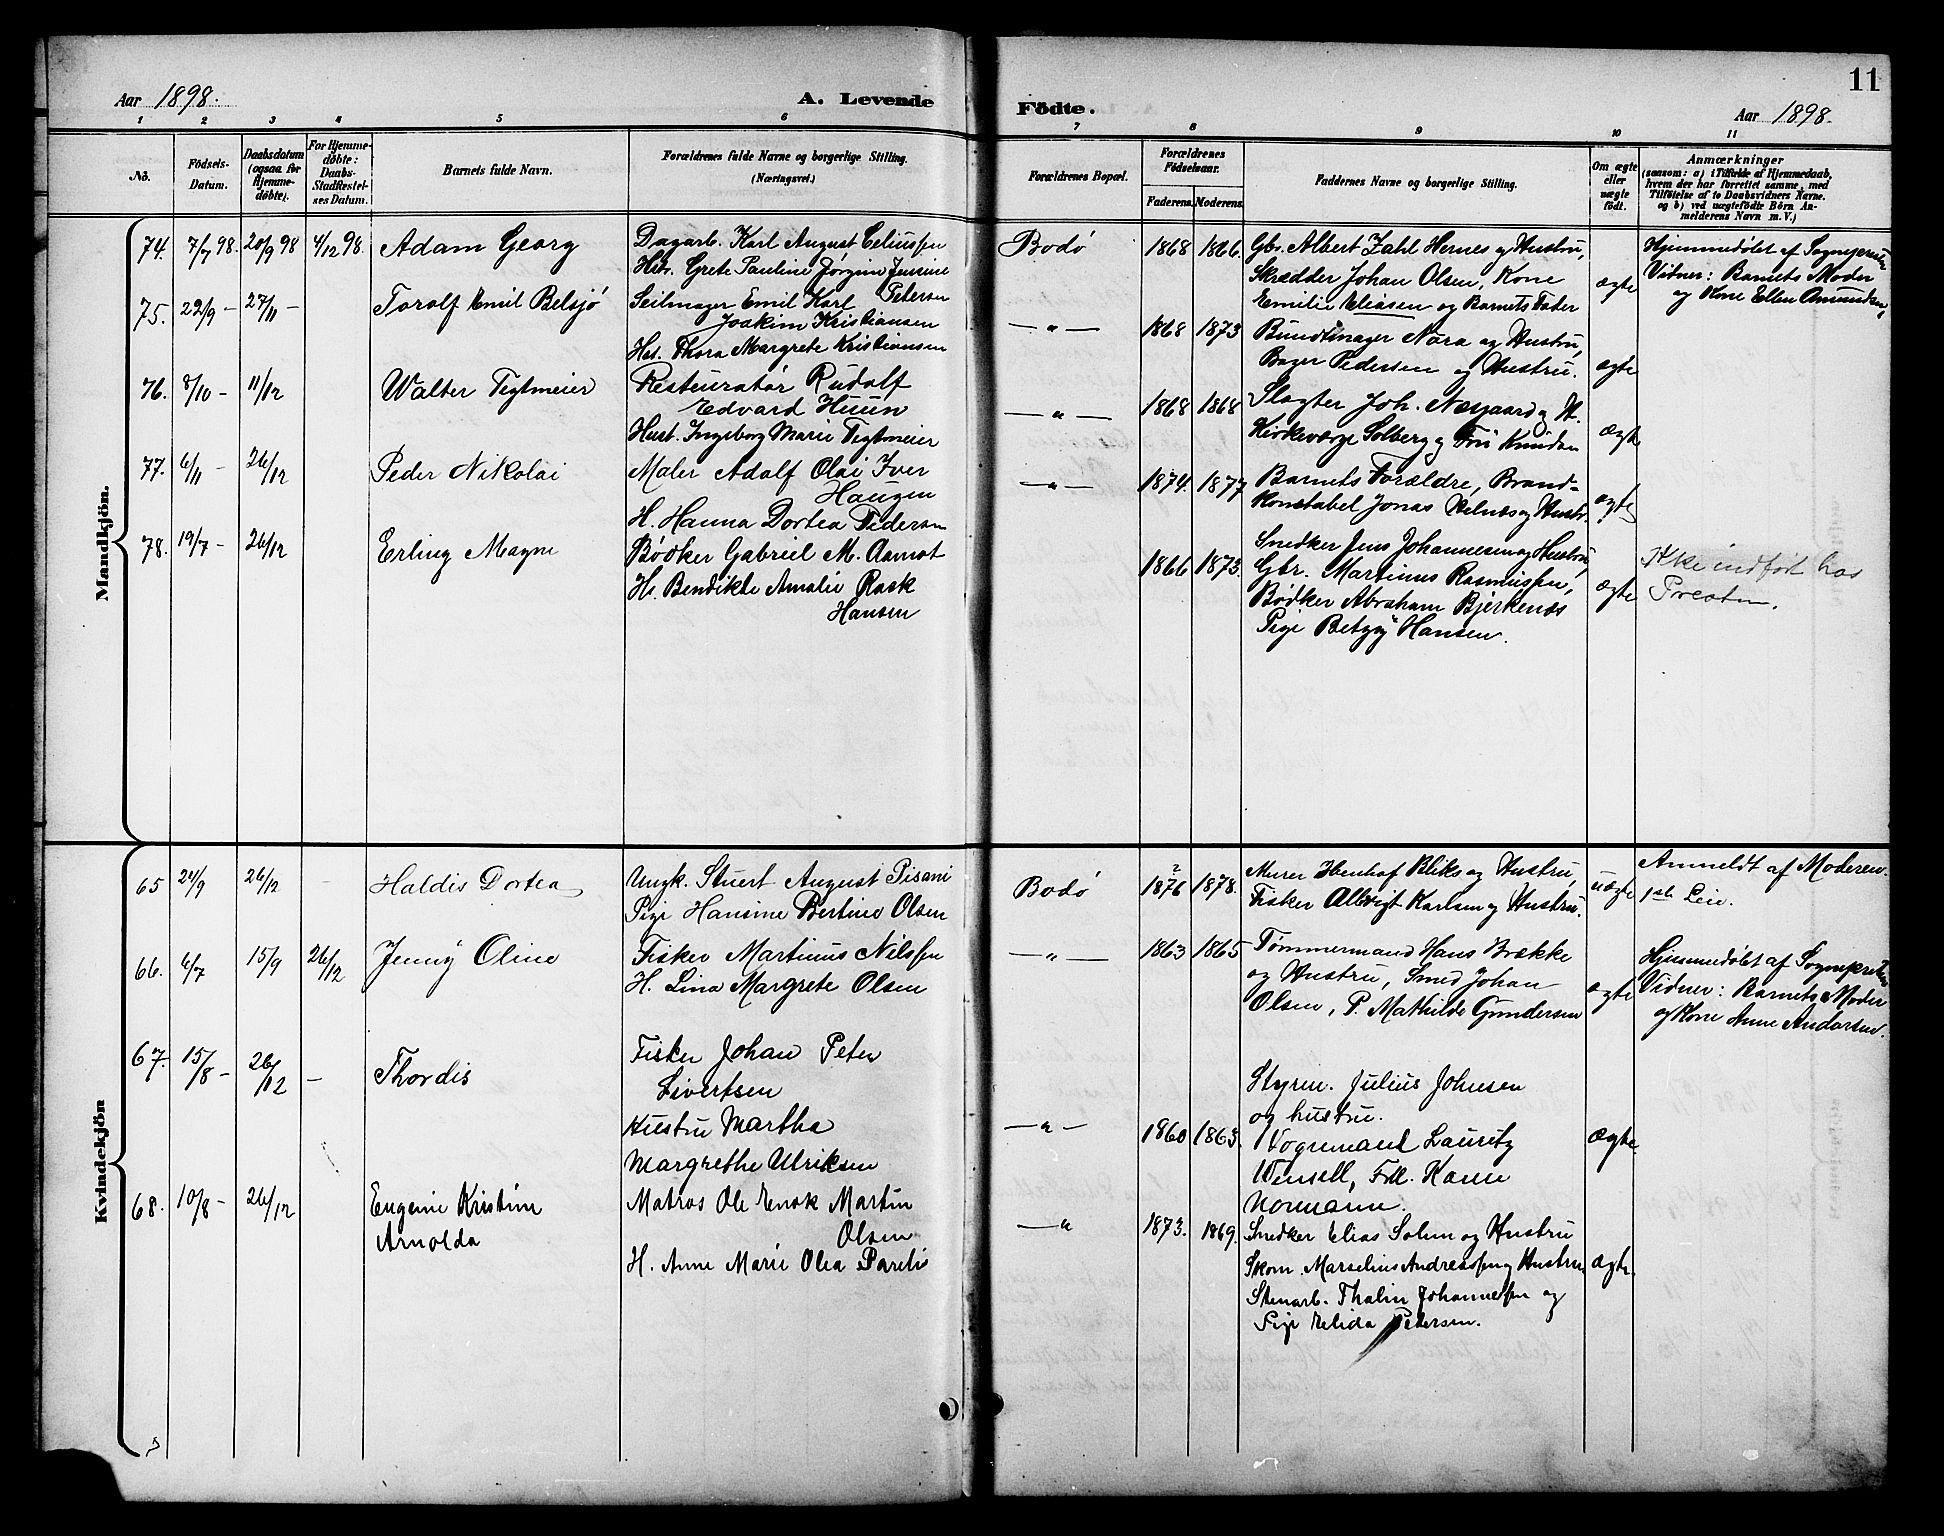 Aar 1898.
A. Levende
1 2 3 4 5 6
No.
Födsels-
Datum.
Daabsdatum
(ogsaa for
Hjemme-
døbte).
For Hjemme-
døbte:
Daabs-
Stadfæstel-
ses Datum.
Barnets fulde Navn.
Forældrenes fulde Navne og borgerlige Stilling.
(Næringsvei.)
Mandkjön.
74. 7/7 98. 20/9 98 4/12 98. Adam Georg
Dagarb. Karl August Celiussen
Hstr. Grete Pauline Jørgine Jensine
Petersen
75. 22/9 - 27/11 - Toralf Emil Belsjö
Seilmager Emil Karl
Joakim Kristiansen
Hst. Thora Margrete Kristiansen
76. 8/10 - 11/12 Walter Tigtmeier
Restauratør Rudolf
Edvard Huun
Hust. Ingeborg Marie Tigtmeier
77. 6/11 - 26/12 Peder Nikolai
Maler Adolf Olai Iver
Haugen
H. Hanna Dortea Pedersen
78. 19/7 - 26/12 Erling Magne
Bødker Gabriel M. Aamot
Hs. Bendikte Amalie Rask
Hansen
Kvindekjön
65 21/9 26/12 - Haldis Dortea
Ungk. Stuert August Pisani
Pige Hansine Bertine Olsen
66. 6/7 15/9 26/12 Jenny Oline
Fisker Martinus Nilssen
H. Lina Margrete Olsen
67. 15/8 - 26/12 - Thordis
Fisker Johan Peter
Sivertsen
Hustru Martha
Margrethe Ulriksen
68. 10/8 - 26/12 Eugenie Kristine
Arnolda
Matros Ole Enok Martin
Olsen
H. Anne Marie Olea Pareli
11
Födte.
Aar 1898.
7 8 9 10 11
Forældrenes Bopæl.
Forældrenes
Födselsaar.
Faderens. Moderens.
Faddernes Navne og borgerlige Stilling.
Om ægte
eller
uægte
födt.
Anmærkninger
(saasom: a) i Tilfælde af Hjemmedaab,
hvem der har forrettet samme, med
Tilföielse af to Daabsvidners Navne.
og b) ved uægtefödte Börn An-
melderens Navn m. V.)
Bodö 1868 1866. Gbr. Albert Zahl Hernes og Hustru,
Skrædder Johan Olsen, Kone
Emilie Eliasen og Barnets Fader
ægte
Hjemmedøbt af Sognepresten
Vidner: Barnets Moder
og Kone Ellen Amundsen,
—"— 1868 1873 Bundtmager Nora og Hustru,
Bager Pedersen og Hustru. ægte
—"— 1868 1868 Slagter Joh. Næsgaard og H.
Kirkeværge Solberg og Fru Knudsen ægte
—"— 1874. 1877 Barnets Forældre, Brand-
konstabel Jonas Helnæs og Hustr. ægte
Snedker Jens Johannesen og Hustru,
1866 1873. Gbr. Martinus Rasmussen,
Bødker Abraham Bjerkenæs
Pige Betzy Hansen.
ægte
Ikke indført hos
Presten.
Bodö 2
1876 1878. Murer Ibenhof Bliks og Hustru,
Fisker Albrigt Karlsen og Hustru.
uægte
Anmeldt af Moderen.
1ste Leie.
—"— 1863 1865 Tømmermand Hans Brække
og Hustru, Smed Johan
Olsen, P. Mathilde Gundersen
ægte
Hjemmedøbt af Sognepresten
Vidner: Barnets Moder
og Kone Anne Andersen.
Styrm. Julius Johnsen
og hustru.
—"— 1860 1863. Vognmand Lauritz
Wensell, Frk. Karen
Normann.
ægte
—"— 1873. 1869. Snedker Elias Solem og Hustru
Skom. Marselius Andreassen og Hustru
Stenarb. Thalin Johannessen og
Pige Elida Petersen.
ægte.